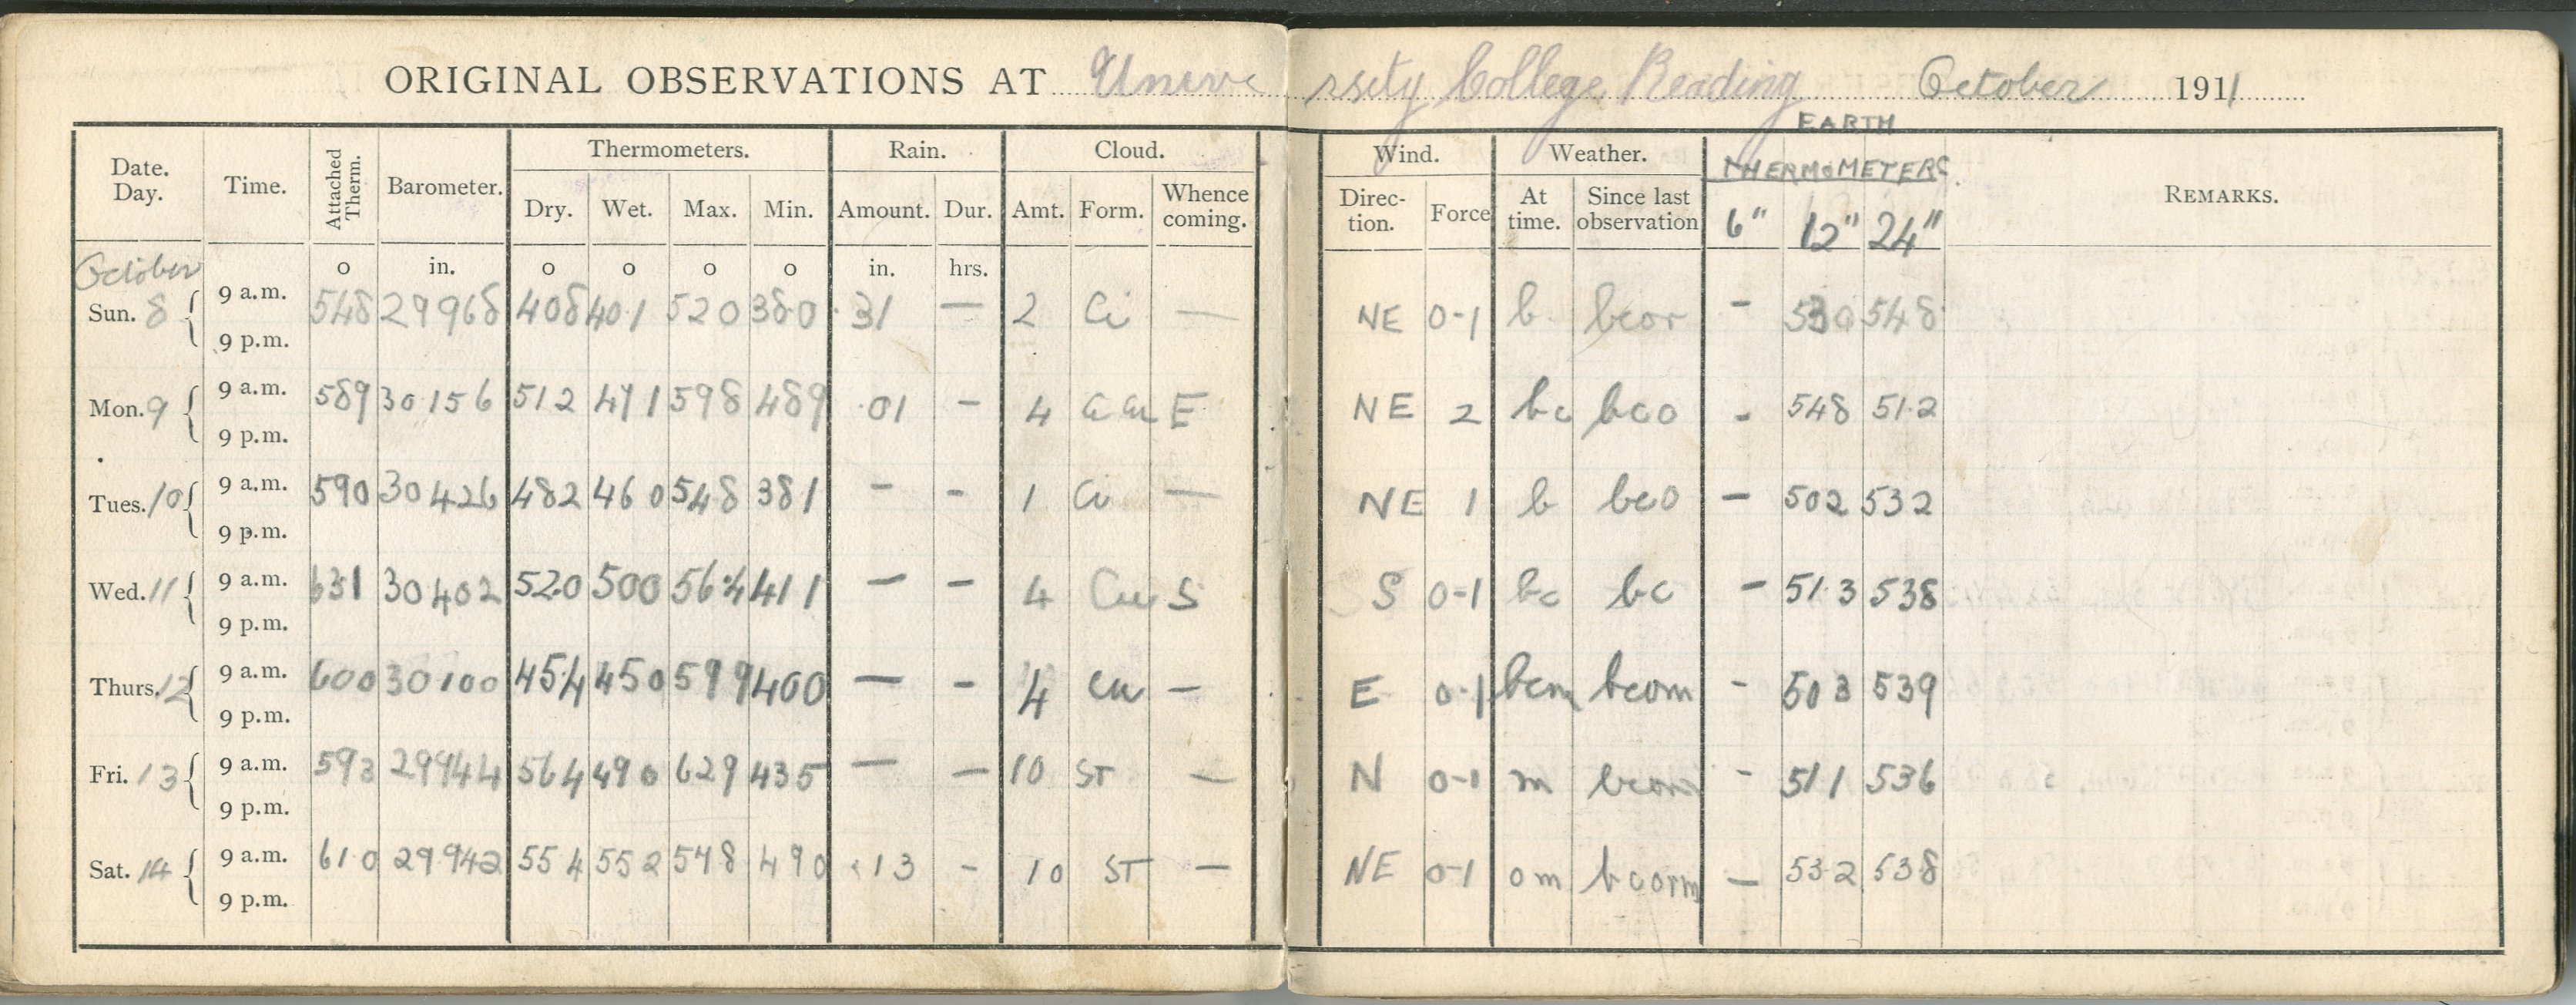 ORIGINAL OBSERVATIONS AT University College Reading October 1911
EARTH
Date. Day. Time. Attached Therm. Barometer. Thermometers. Rain. Cloud. Wind. Weather. THERMOMETERS REMARKS.
Dry. Wet. Max. Min. Amount. Dur. Amt. Form. Whence coming. Direc- tion. Force At time. Since last observation 6" 12" 24"
October o in. o o o o in. hrs.
Sun. 8 9 a.m. 548 29968 408 40·1 520 38·0 ·31 — 2 Ci — NE 0-1 b bcor - 530 548
9 p.m.
Mon. 9 9 a.m. 589 30156 512 471 598 489 ·01 - 4 Ci Cu E NE 2 bc bco - 548 51·2
9 p.m.
Tues. 10 9 a.m. 590 30426 482 460 548 381 - - 1 Ci — NE 1 b bco - 502 532
9 p.m.
Wed. 11 9 a.m. 631 30402 52·0 500 56·4 411 - - 4 Cu S S 0-1 bc bc - 51·3 538
9 p.m.
Thurs. 12 9 a.m. 600 30100 45·4 450 599 400 — - 4 Cu — E 0-1 bcm bcom - 503 539
9 p.m.
Fri. 13 9 a.m. 593 29944 564 490 629 435 — — 10 ST — N 0-1 m bcom - 511 536
9 p.m.
Sat. 14 9 a.m. 61·0 29·942 554 552 578 490 ·13 - 10 ST — NE 0-1 om bcorm — 53·2 538
9 p.m.